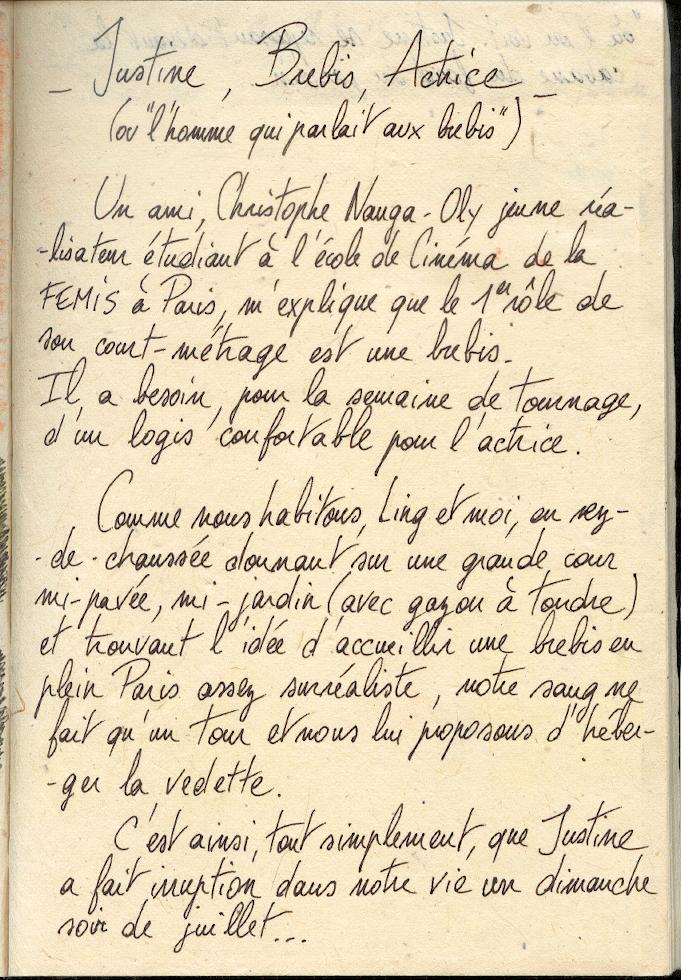 - Justine, Brebis, Actrice -
(ou "l'homme qui parlait aux brebis")
Un ami, Christophe Nanga-Oly jeune réa-
-lisateur étudiant à l'école de Cinéma de la
FEMIS à Paris, m'explique que le 1er rôle de
son court-métrage est une brebis.
Il a besoin, pour la semaine de tournage,
d'un logis confortable pour l'actrice.
Comme nous habitons, Ling et moi, en rez-
-de-chaussée donnant sur une grande cour
mi-pavée, mi-jardin (avec gazon à tondre)
et trouvant l'idée d'accueillir une brebis en
plein Paris assez surréaliste, notre sang ne
fait qu'un tour et nous lui proposons d'héber-
-ger la vedette.
C'est ainsi, tout simplement, que Justine
a fait irruption dans notre vie un dimanche
soir de juillet...